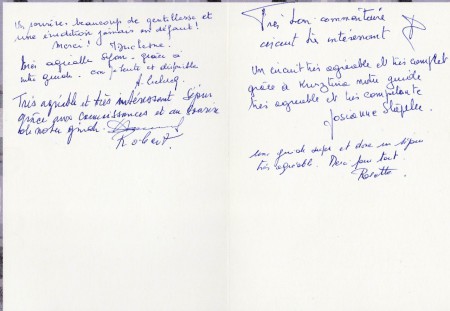 Un sourire, beaucoup de gentillesse et
une érudition jamais en défaut!
Merci!
Très agréable séjour grâce à
notre guide compétente et disponible
Très agréable et très intéressant séjour
grâce aux connaissances et au sourire
de notre guide
Robert.
Très bon commentaire
circuit très intéressant
Un circuit très agréable et très complet
grâce à notre guide
très agréable et très compétente
Josianne
une guide super et donc un séjour
très agréable. Merci pour tout.